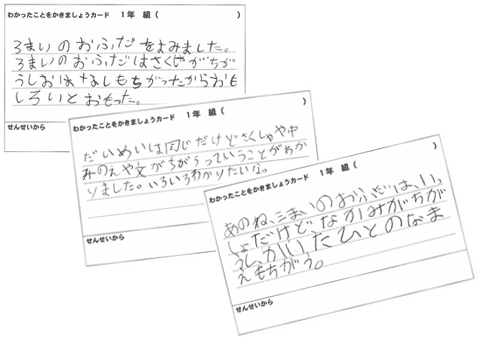 わかったことをかきましょうカード 1年 組( )
3まいのおふだをよみました。
3まいのおふだはさくしゃがちが
うしおはなしもちがったからおも
しろいとおもった。
せんせいから
わかったことをかきましょうカード 1年 組( )
だいめいは同じだけどさくしゃや中
みのえや文がちがうっていうことがわか
りました。いろいろわかりたいな。
せんせいから
わかったことをかきましょうカード 1年 組( )
あのね、三まいのおふだは、いっ
しょだけど、なかみがちが
う。、かいたひとのなま
えもちがう。
せんせいから